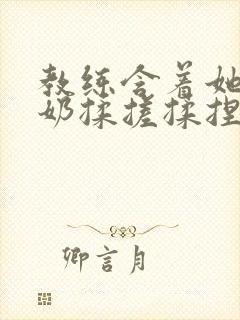 教练含着她
奶揉搓揉捏
卿言月